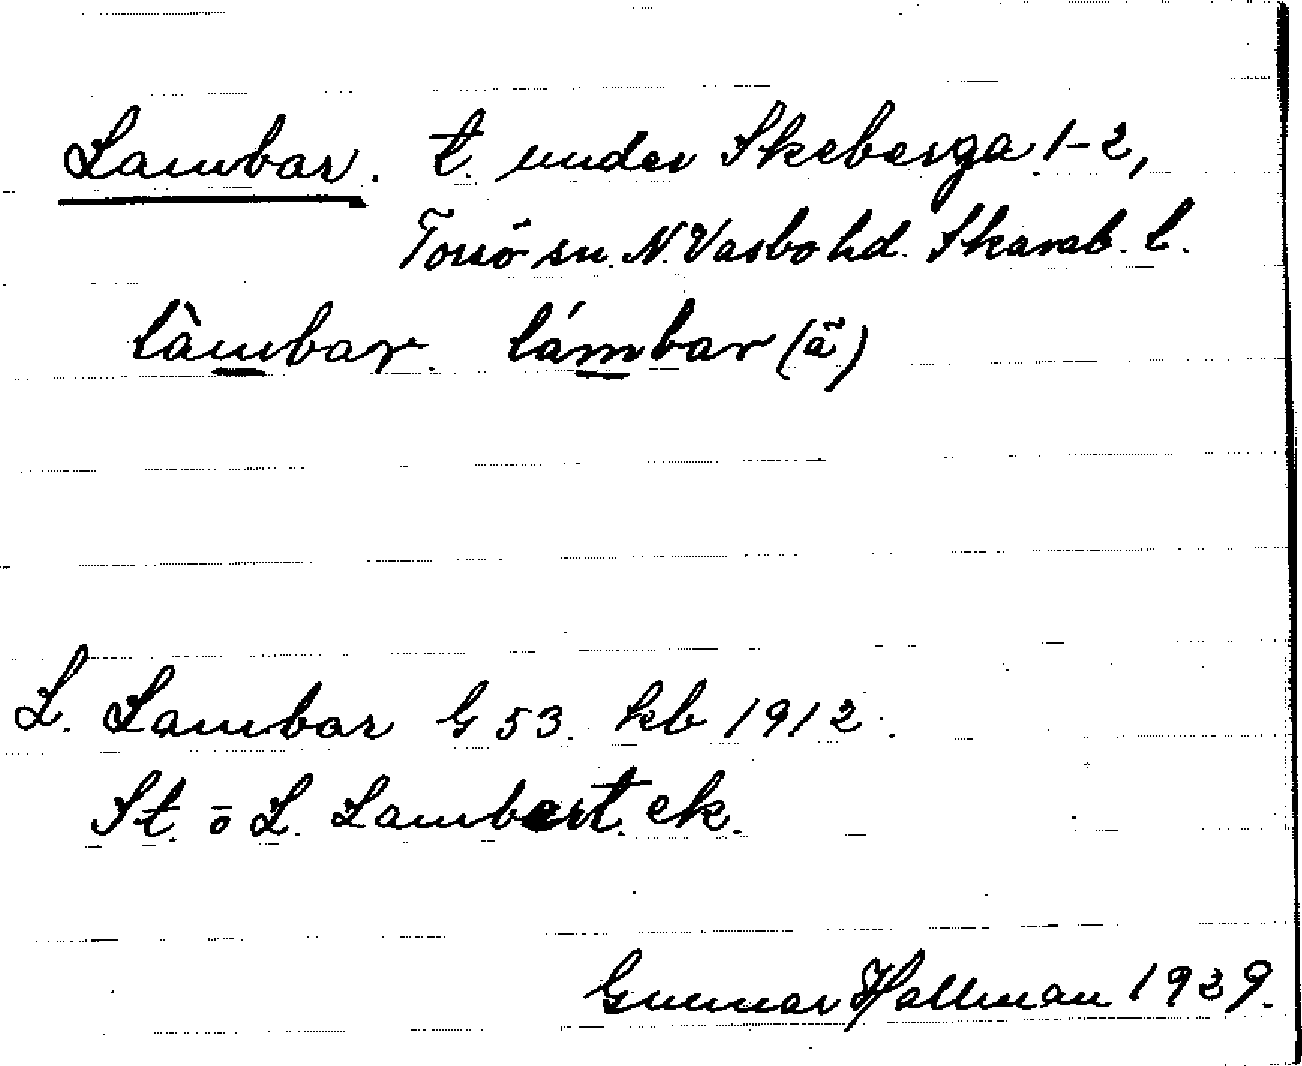 Lambar. t. under Skeberga 1-2,
Torsö sn. N. Vadsbo hd. Skarab. l.
làmbar. lámbar (ä)
L. Lambar G 53. kb 1912.
St. o L. Lambert. ek.
Gunnar Hallman 1929.